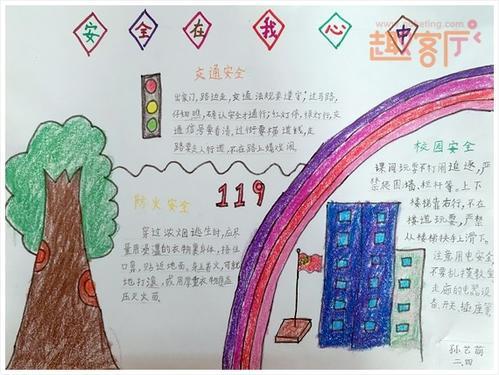 安全在我心中
www.keting.com
趣客厅
交通安全
出家门,路边走,交通法规要遵守;过马路,
仔细瞧,确认安全才通行;红灯停,绿灯行,交
通信号要看清,过街要横道线,走
路要走人行道,不在路上嬉逗闹。
119
防火安全
穿过浓烟逃生时,应尽
量用浸湿的衣物裹身体,捂住
口鼻,贴近地面。身上着火,可就
地打滚,或用厚重衣物覆盖
压灭火苗
校园安全
课间玩耍不打闹追逐,严
禁爬围墙、栏杆等。上下
楼梯靠右行,不在
楼道玩耍,严禁
从楼梯扶手上滑下。
注意用电安全
不要乱摸教室
走廊的电器设
备、开关、插座等
孙艺萌
二.四